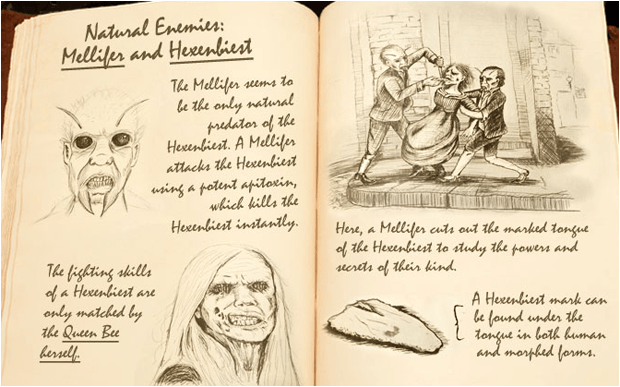 Natural Enemies:
Mellifer and Hexenbiest
The Mellifer seems to
be the only natural
predator of the
Hexenbiest. A Mellifer
attacks the Hexenbiest
using a potent apitoxin,
which kills the
Hexenbiest instantly.
The fighting skills
of a Hexenbiest are
only matched by
the Queen Bee
herself.
Here, a Mellifer cuts out the marked tongue
of the Hexenbiest to study the powers and
secrets of their kind.
A Hexenbiest mark can
be found under the
tongue in both human
and morphed forms.